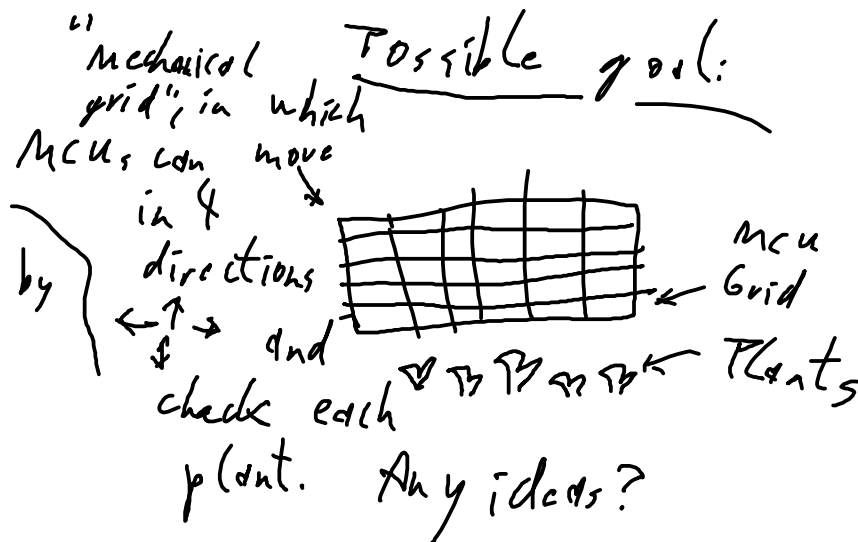 Possible goal:
"Mechanical
grid", in which
MCUs can move
in 4
directions
and
check each
plant. Any ideas?
by
MCU
Grid
Plants